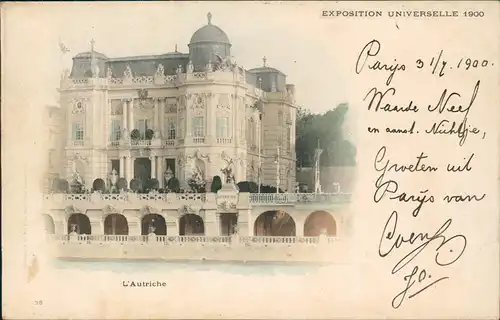 EXPOSITION UNIVERSELLE 1900
Parys 31/7. 1900.
Waarde Neef
en aanst. Nichtje,
Groeten uit
Parys van
L'Autriche